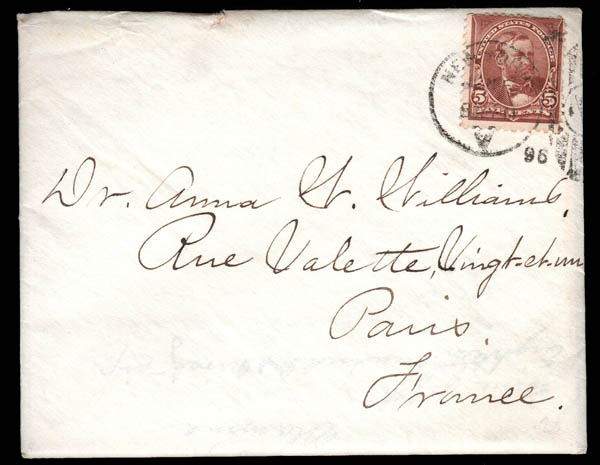 UNITED STATES POSTAGE
5 5
FIVE CENTS
NEW
96
Dr. Anna W. Williams,
Rue Valette, Vingt-et-un
Paris.
France.